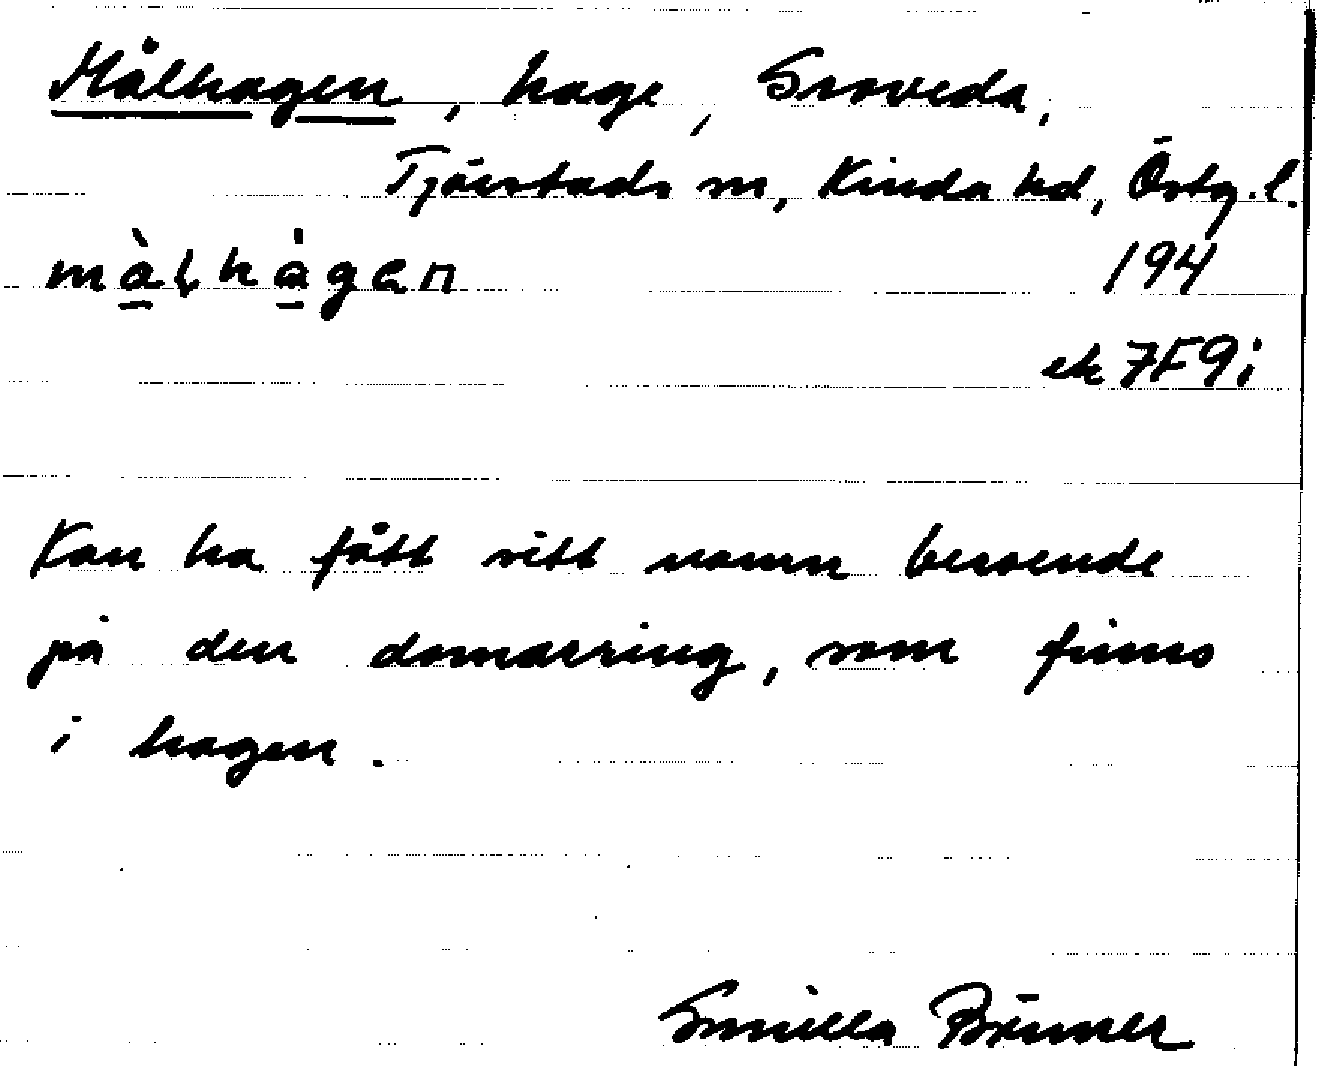 Målhagen, hage, Sroveda,
Tjärstads sn, Kinda hd, Östg.l.
målhagen 194
ek 7F9i
Kan ha fått sitt namn beroende
på den domarring, som finns
i hagen.
Gunilla